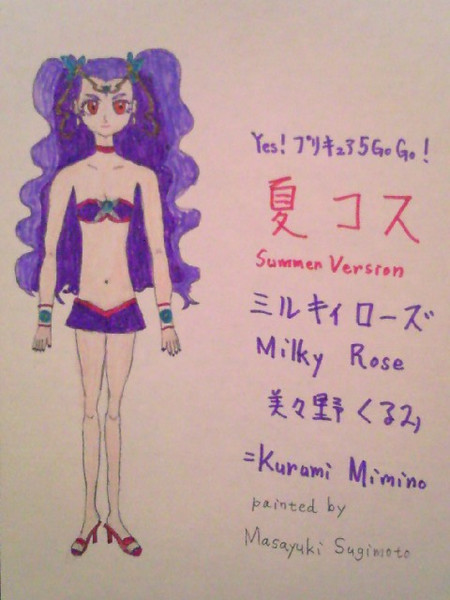 Yes! プリキュア5GoGo!
夏コス
Summer Version
ミルキィローズ
Milky Rose
美々野くるみ
=Kurumi Mimino
painted by
Masayuki Sugimoto